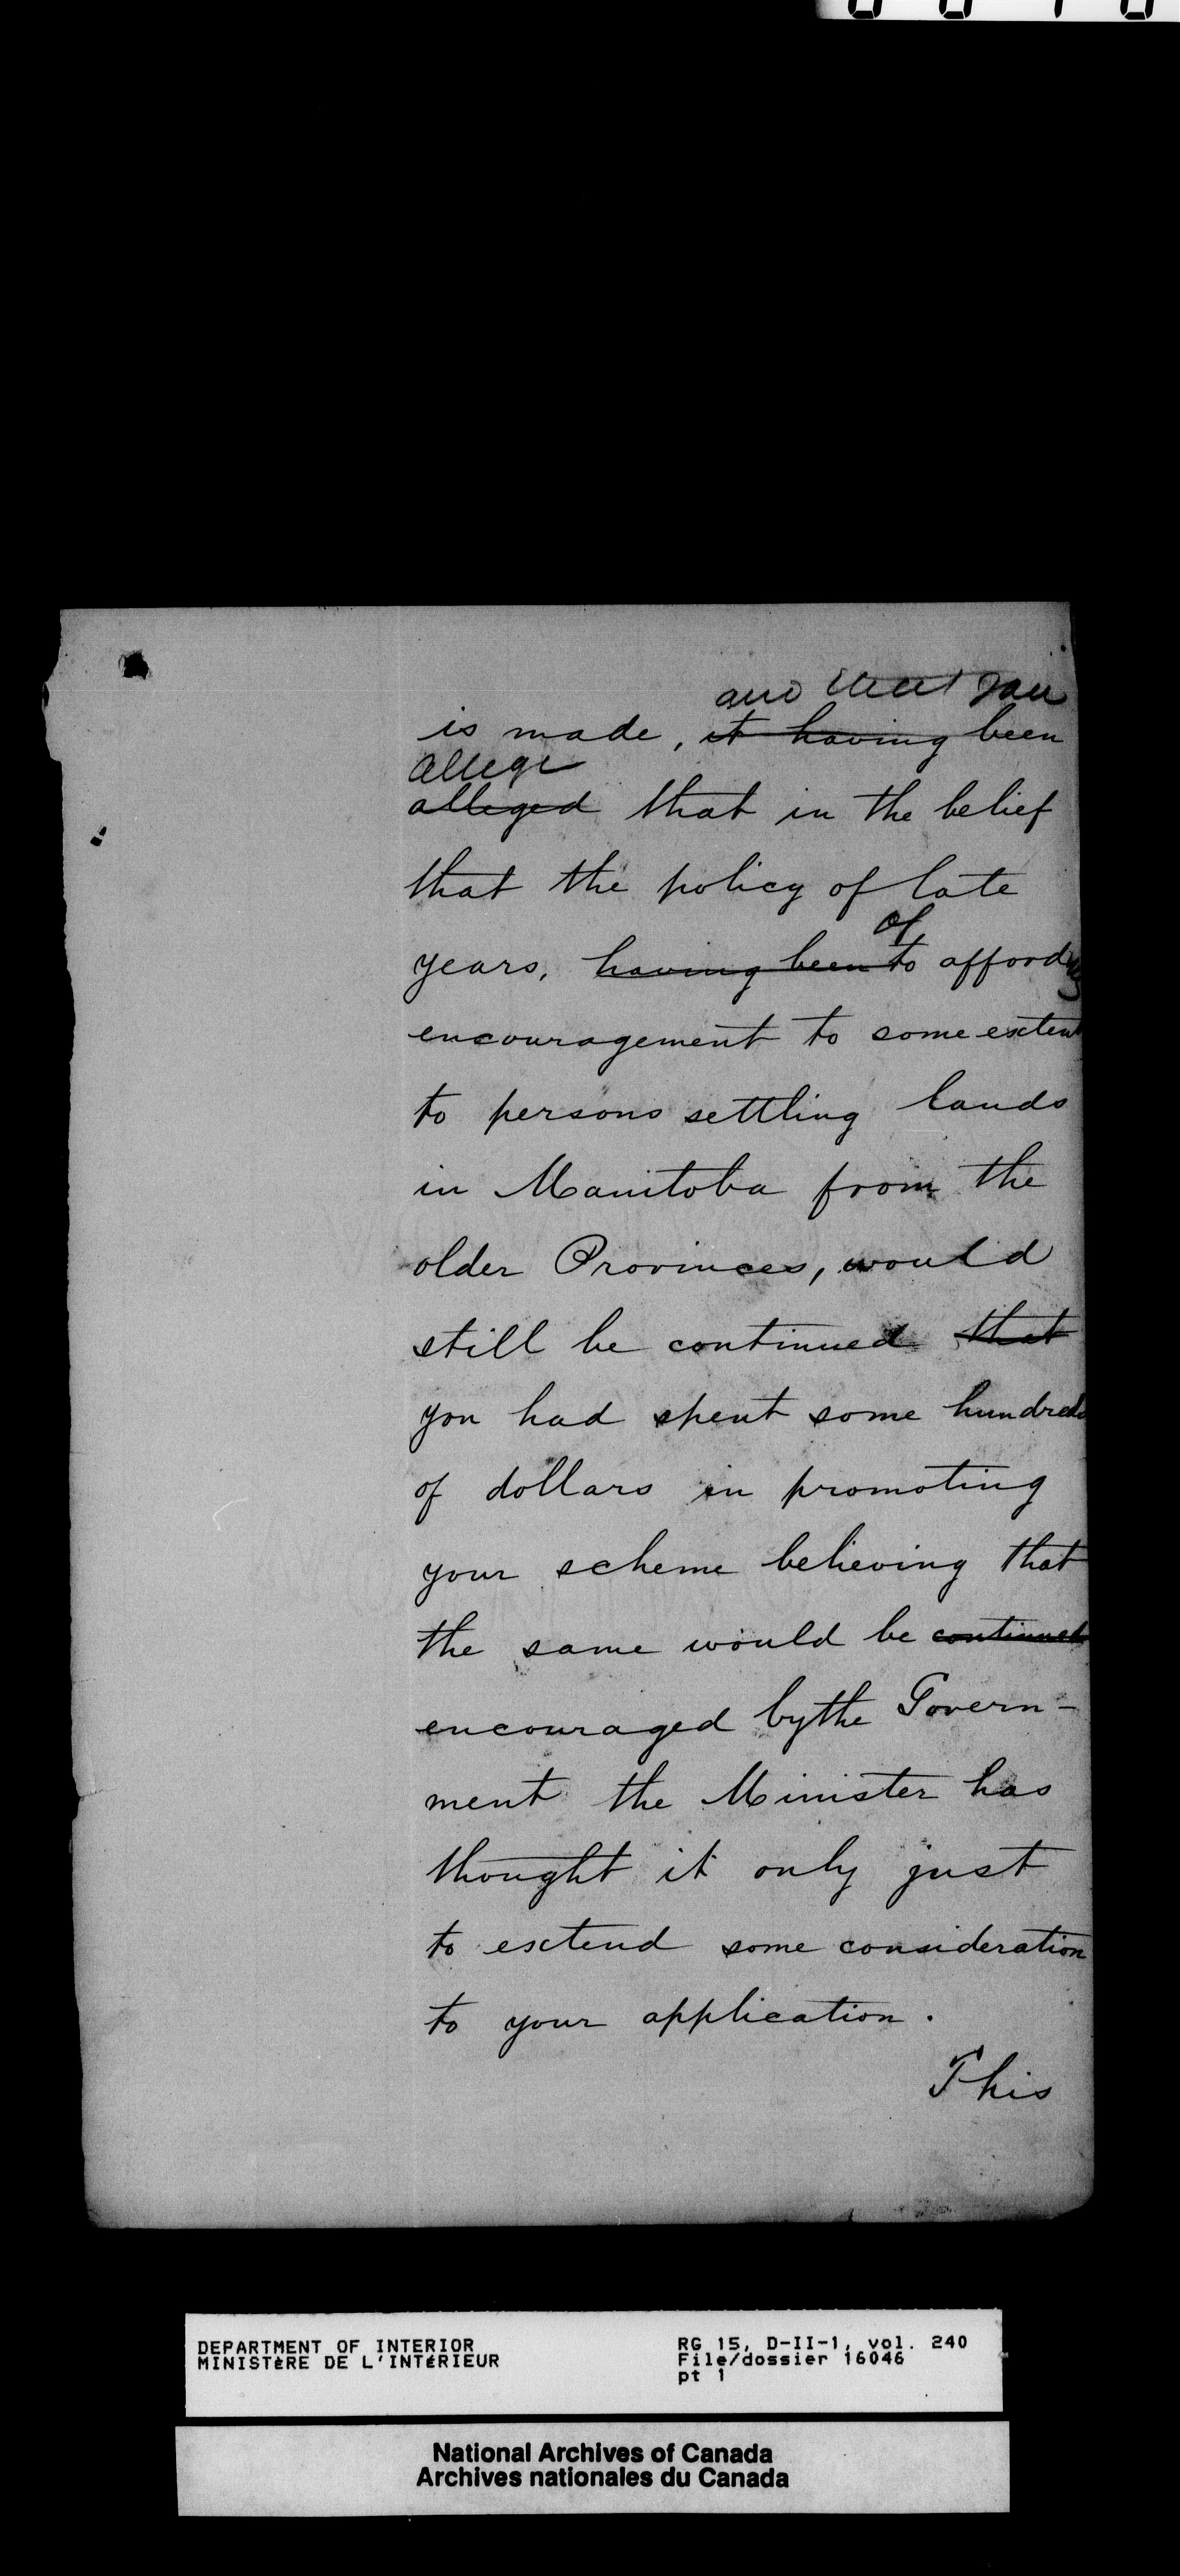 and that you
is made, it having been
allege
alleged that in the belief
that the policy of late
of
years, having been to affording
encouragement to some extent
to persons settling lands
in Manitoba from the
older Provinces, would
still be continued that
you had spent some hundreds
of dollars in promoting
your scheme believing that
the same would be continued
encouraged by the Govern-
ment the Minister has
thought it only just
to extend some consideration
to your application.
This
DEPARTMENT OF INTERIOR
MINISTÈRE DE L'INTÉRIEUR
RG 15, D-II-1, vol. 240
File/dossier 16046
pt 1
National Archives of Canada
Archives nationales du Canada